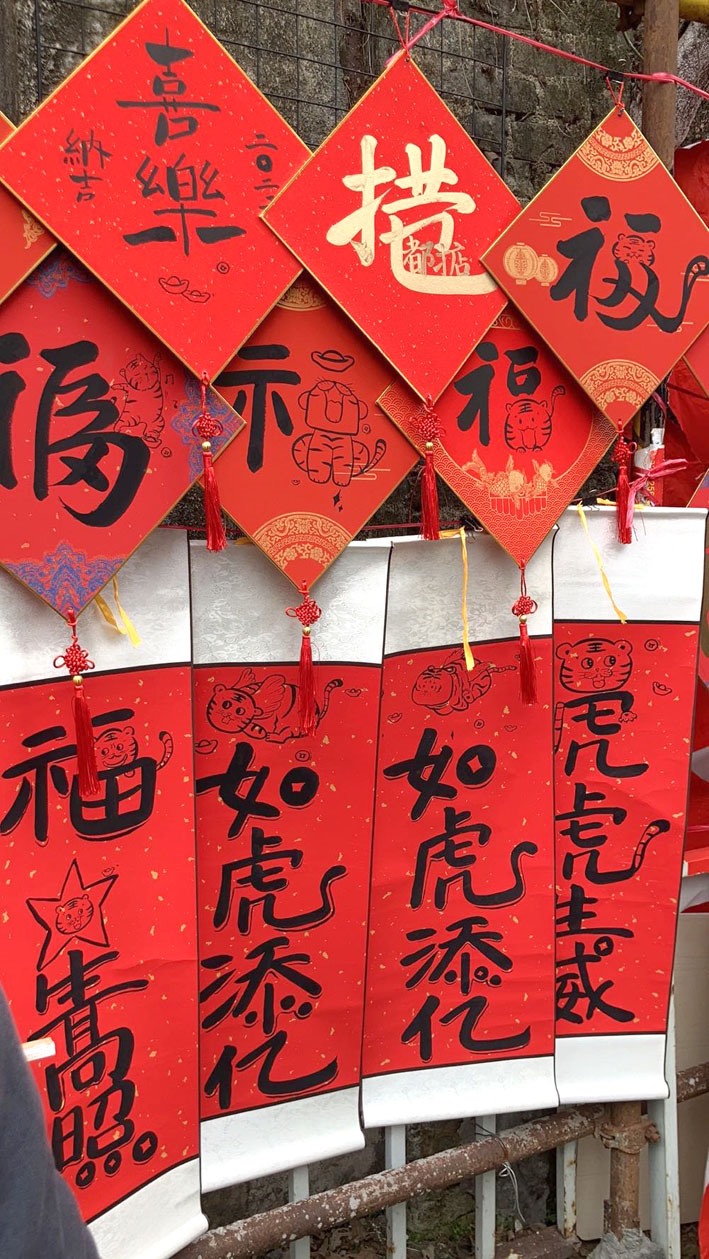 喜樂
納吉
二〇二
都掂
福
福
福
福星高照
如虎添亿
如虎添亿
虎虎生威